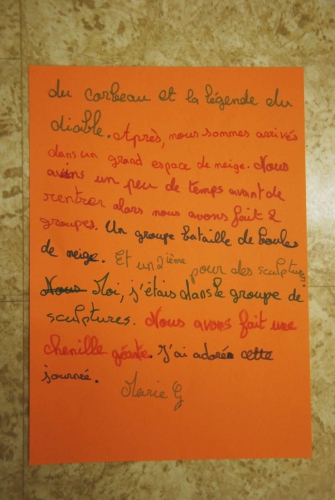 du corbeau et la légende du
diable. Après, nous sommes arrivés
dans un grand espace de neige. Nous
avions un peu de temps avant de
rentrer alors nous avons fait 2
groupes. Un groupe bataille de boules
de neige. Et un 2ième pour des sculptures
Nous Moi, j'étais dans le groupe de
sculptures. Nous avons fait une
chenille géante. J'ai adorée cette
journée.
Marie G